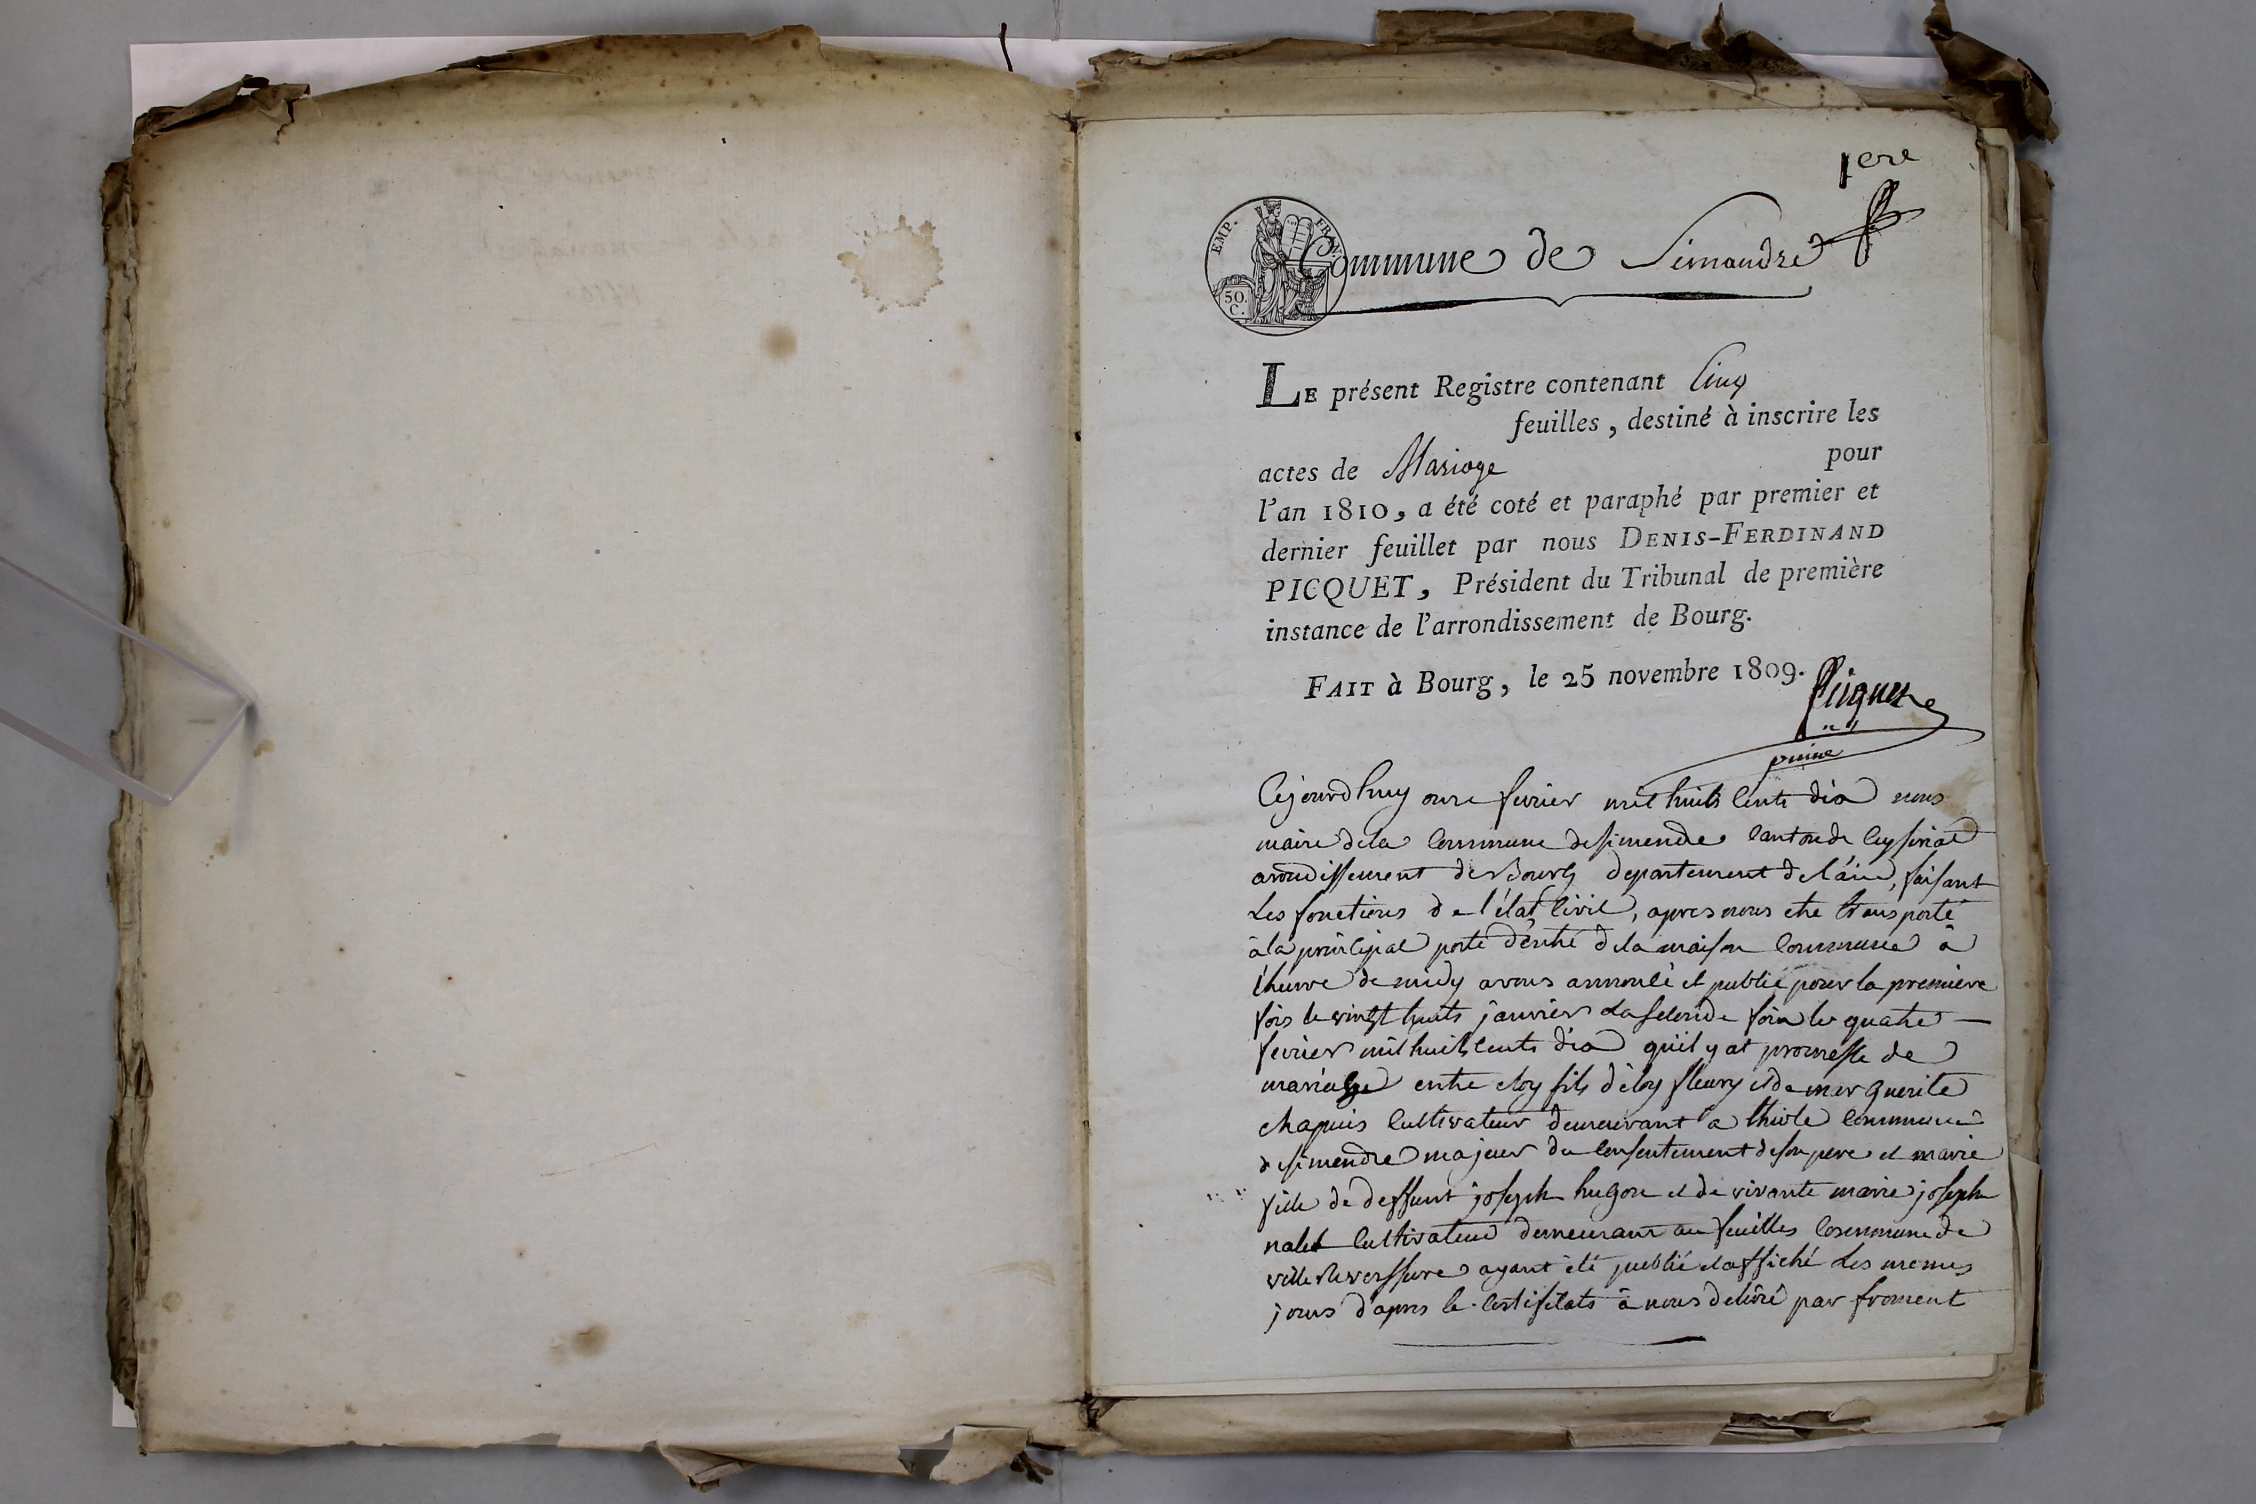 1ere
EMP. FRAN.
50. C.
Commune de Simandre
LE présent Registre contenant Cinq
feuilles, destiné à inscrire les
actes de Mariage pour
l'an 1810, a été coté et paraphé par premier et
dernier feuillet par nous DENIS-FERDINAND
PICQUET, Président du Tribunal de première
instance de l'arrondissement de Bourg.
FAIT à Bourg, le 25 novembre 1809.
Picquet
Cejourdhuy onze fevrier mil huit cents dix nous
maire dela commune desimendre canton de ceyseriat
arondissement de Bourg departement de l'ain, faisant
les fonctions de l'état civil, apres nous etre transporté
à la principal porte d'entré dela maison commune à
lheure de midy avons annoncé et publié pour la premiere
fois le vingt huits janvier la seconde fois le quatre
fevrier mil huit cents dix qu'il y at promesse de
mariage entre eloy fils d'eloy fleury et de marguerite
chapuis cultivateur demeurant a thiole commune
de simendre majeur du consentement deson pere et marie
fille de deffunt joseph hugon et de vivante marie joseph
nalet cultivateur demeurant au feuilles commune de
ville reversure ayant été publié et affiché les memes
jours d'apres le certificats à nous delivré par froment